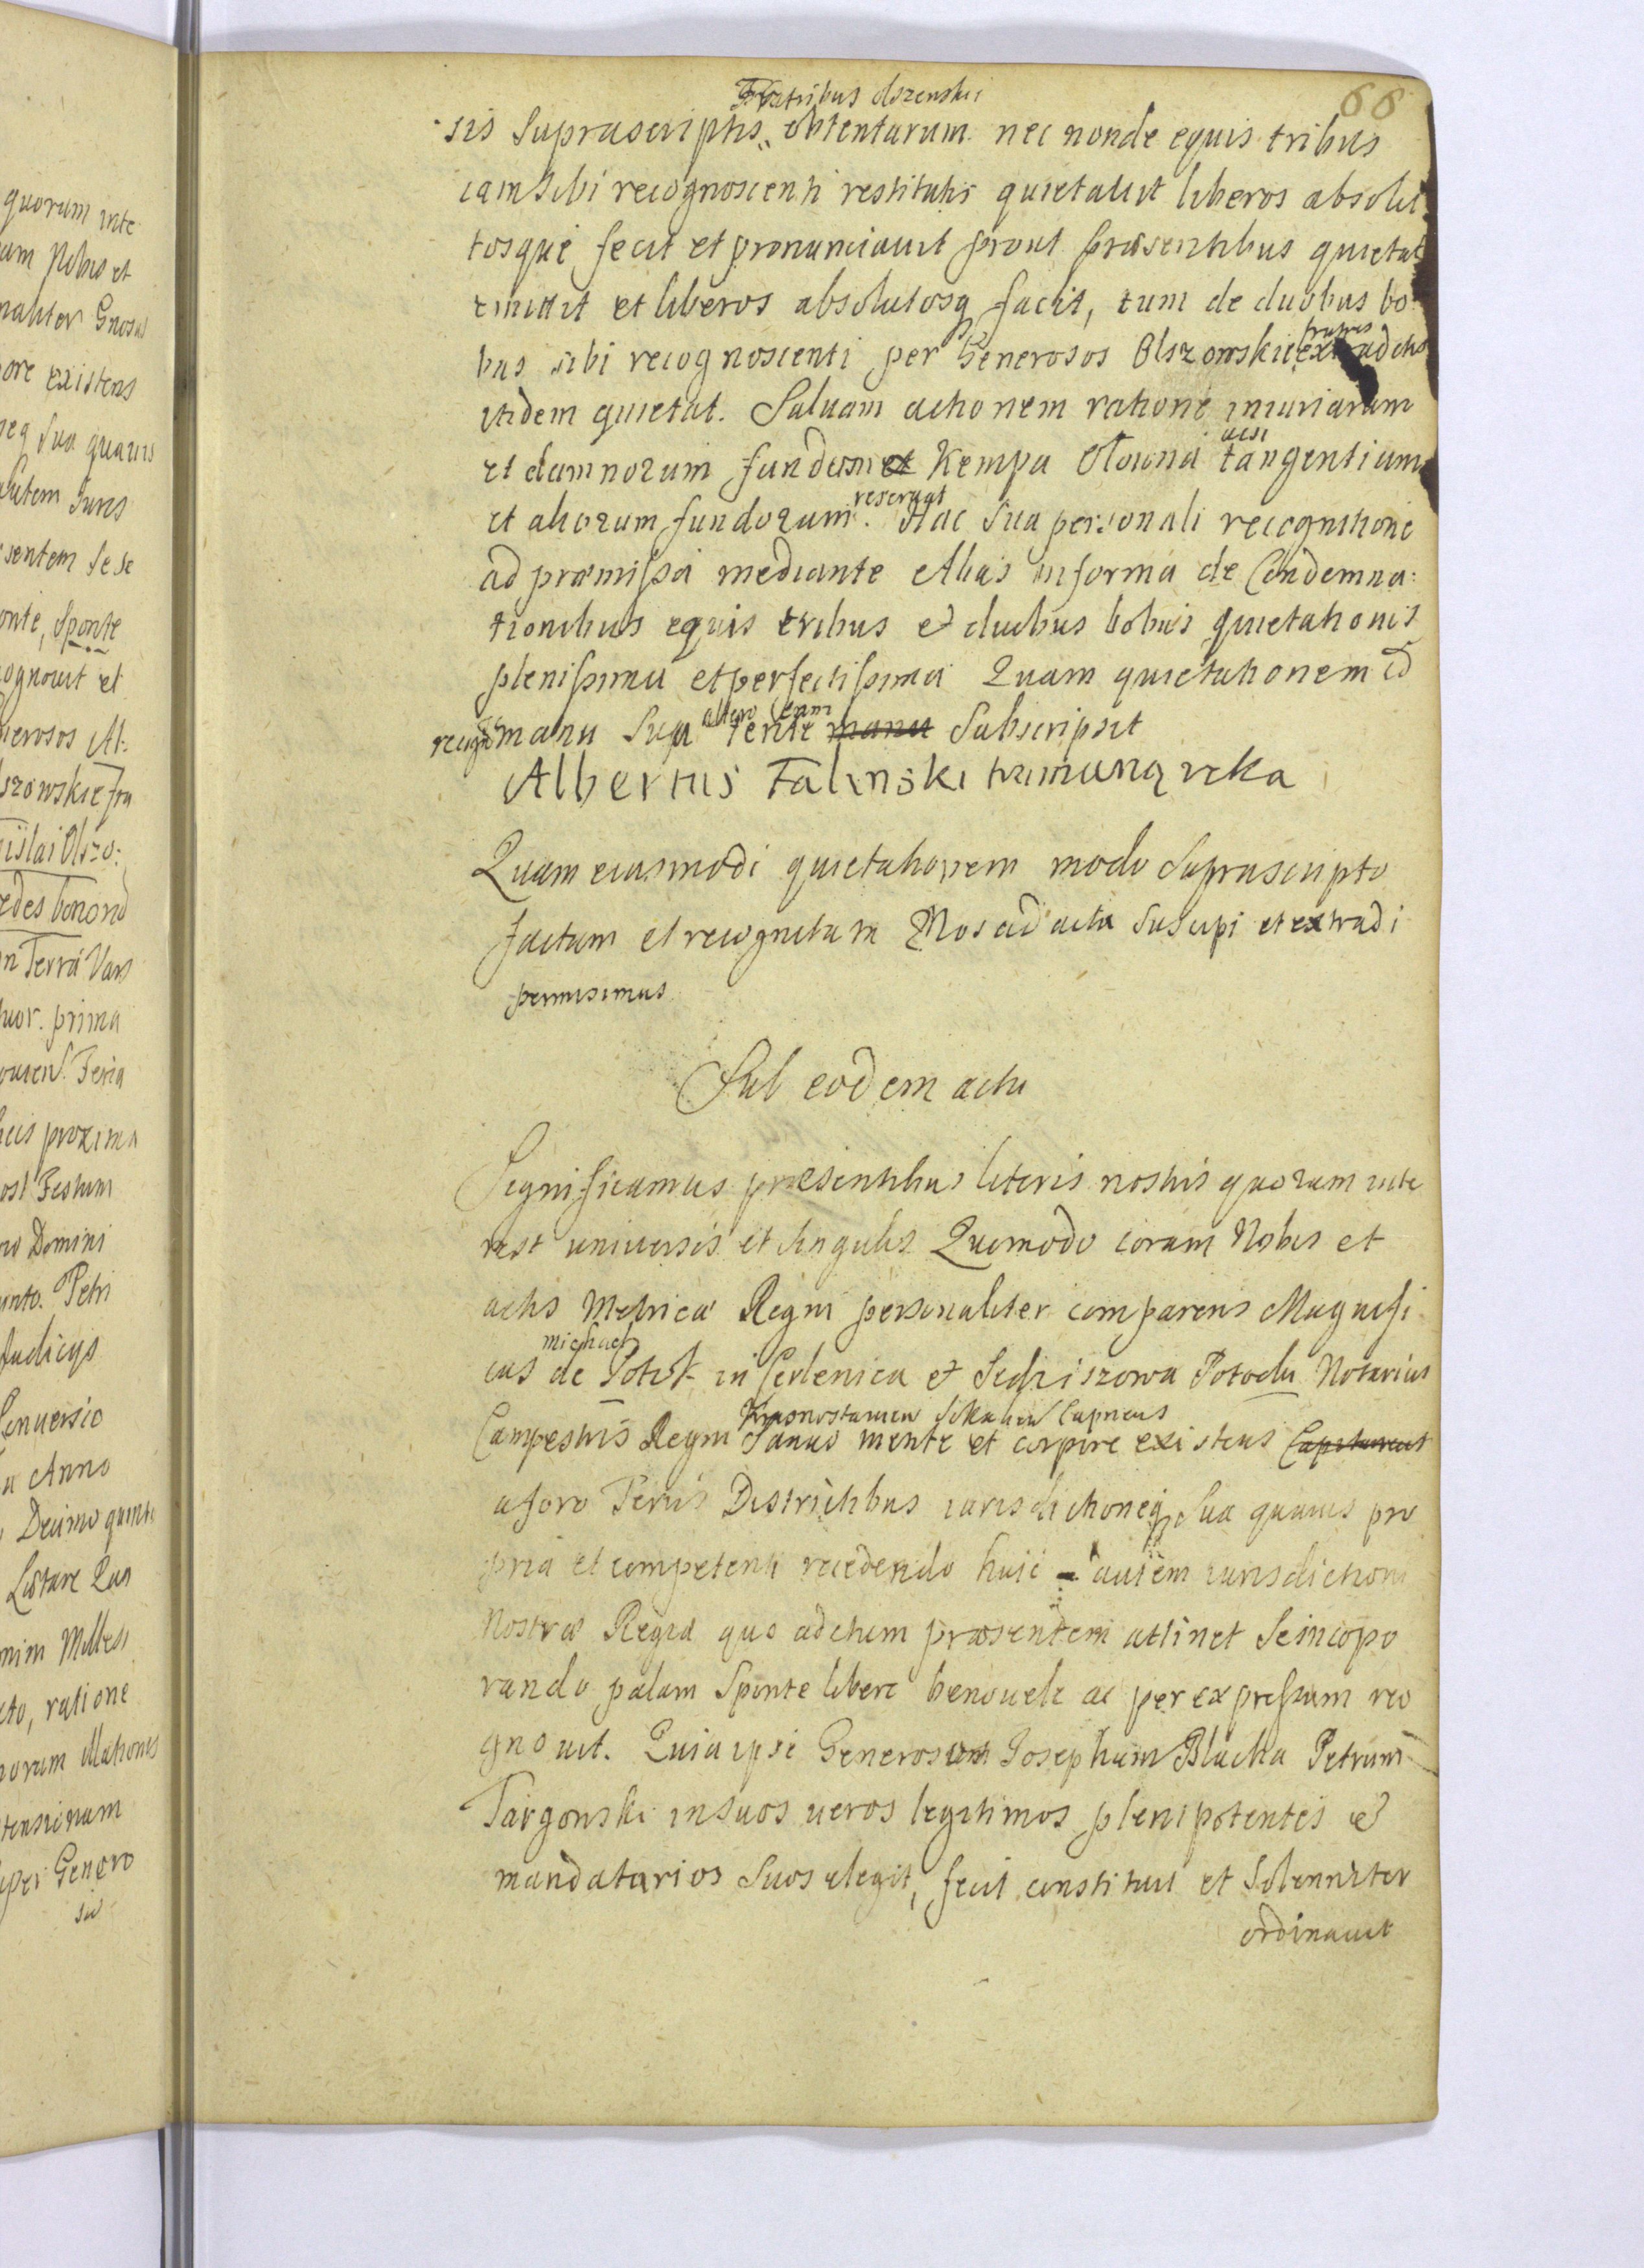 quorum inte
Nobis et
naliter Gnosus
ore existens
sua quavis
autem Juris
sentem sese
onte, sponte
ognovit et
nerosos Al:
szowskie fra
islai Olszo:
edes bonorū
in Terrâ Vars
uor. prima
Feria
proxima
ost Festum
Domini
into. Petri
Judicijs
Conuersio
a Anno
Decimo quinto
nim Milless
cto, ratione
tensionum
uper Genero
sis
66
Fratribus olszenskii
sis Suprascriptis obtentarum nec non de equis tribus
iam sibi recognoscenti restitutis quietauit liberos absolu
tosque fecit et pronunciauit prout præsentibus quietat
emittit et liberos absolutosq facit, tum de duobus bo
fratres
bus sibi recognoscenti per Generosos Olszowskie
itidem quietat. Saluam actionem rationé iniuriarum
acsi
et damnorum fundum Kempa tangentium
reseruat
et aliorum fundorum. Hac sua personali recognitione
ad præmissa mediante Alias in formá de Condemna:
tionibus equis tribus et duobus bobus quietationis
plenissima et perfectissima Quam quietationem id
altero
recogns manu sua tente manu Subscripsit
Albertus Falinski trzimaną reka
Quam eiusmodi quietationem modo suprascripto
factam et recognitam Nos ad acta suscipi et extradi
permisimus
Sub eodem actu
Significamus præsentibus literis nostris quorum inte
rest universis et singulis Quomodo coram Nobis et
actis Metricæ Regni personaliter comparens Magnifi
michael
cus de Potok in Cerlenica et Sedziszowa Potocki Notarius
Krasnostauien Capneus
Campestris Regni Sanus mente et corpore existens Capitaneus
a foro Terris Districtibus iurisdictioneq sua quauis pro
pria et competenti recedendo huic autem iurisdictioni
Nostræ Regiæ quo ad actum præsentem attinet se incorpo
rando palam Sponte libere benouele ac per expressum reco
gnouit. Quia ipse Generosum Josephum Blacha Petrum
Targonski in suos ueros legitimos plenipotentes et
mandatarios suos elegit, fecit constituit et Solenniter
ordinauit